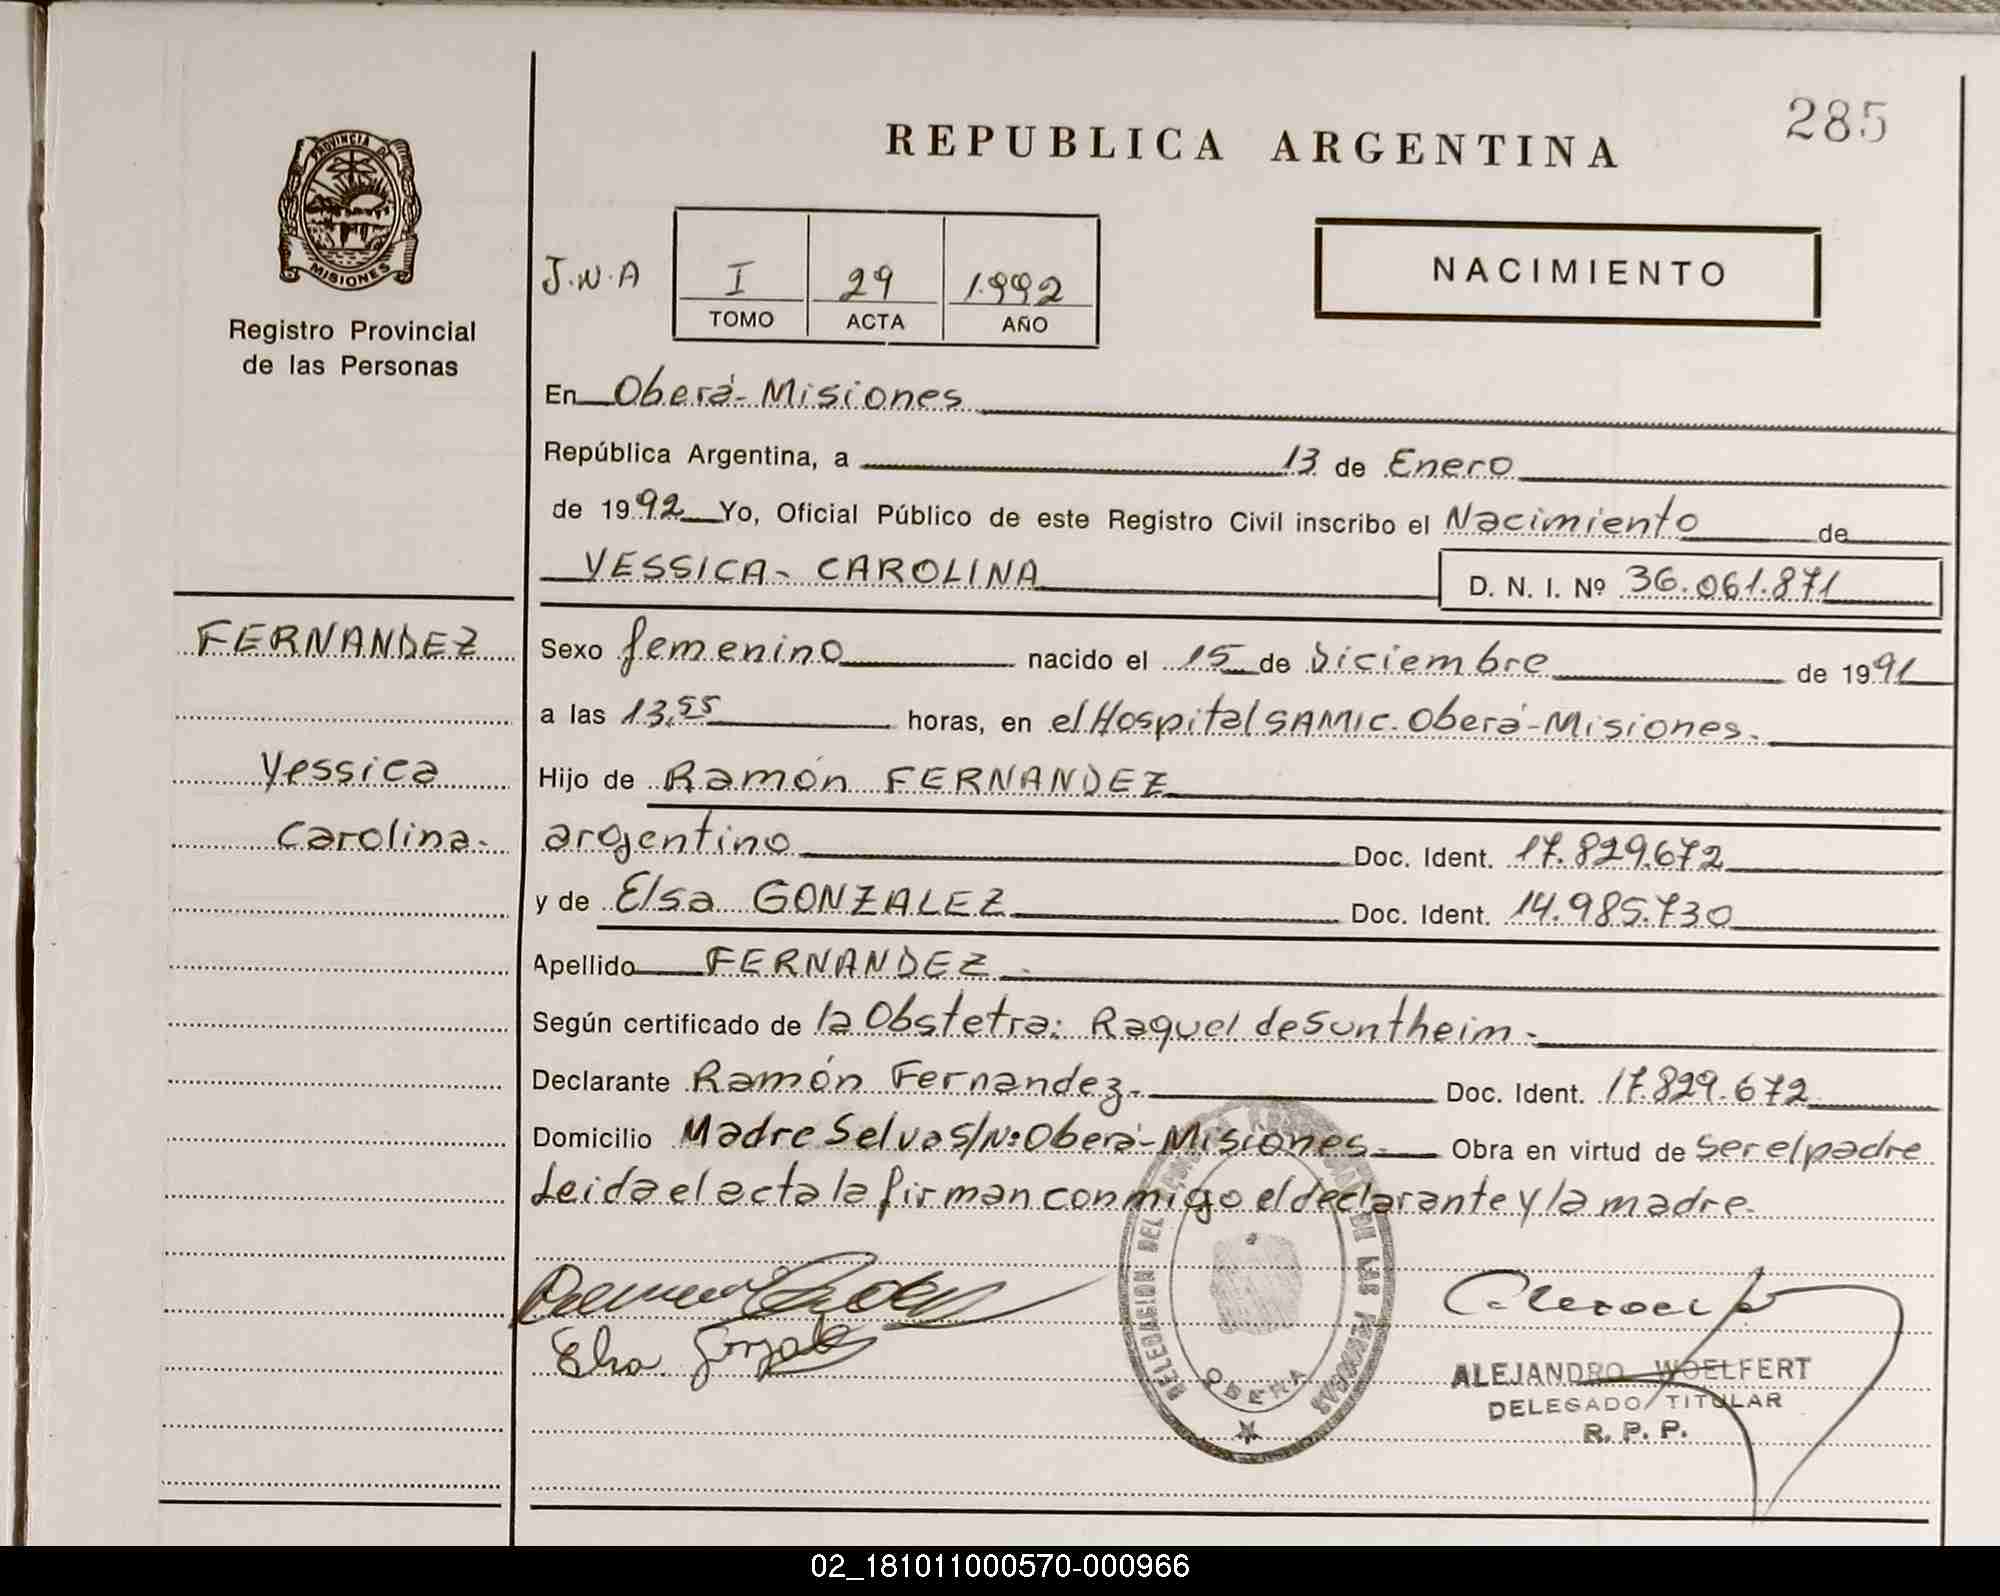 285
REPUBLICA ARGENTINA
PROVINCIA DE
MISIONES
Registro Provincial
de las Personas
J.N.A
I 29 1.992
TOMO ACTA AÑO
NACIMIENTO
En Oberá-Misiones
República Argentina, a 13 de Enero
de 1992 Yo, Oficial Público de este Registro Civil inscribo el Nacimiento de
YESSICA- CAROLINA
D. N. I. Nº 36.061.871
FERNANDEZ
Yessica
Carolina.
Sexo femenino nacido el 15 de Diciembre de 1991
a las 13,55 horas, en el Hospital SAMIC. Oberá-Misiones.
Hijo de Ramón FERNANDEZ
argentino Doc. Ident. 17.829.672
y de Elsa GONZALEZ Doc. Ident. 14.985.730
Apellido FERNANDEZ.
Según certificado de la Obstetra: Raquel de Suntheim.
Declarante Ramón Fernandez. Doc. Ident. 17.829.672
Domicilio Madre Selva S/Nº Oberá-Misiones. Obra en virtud de ser el padre
Leida el acta la firman conmigo el declarante y la madre.
Elsa Gonzalez
DELEGACION DEL DE LAS PERSONAS
OBERA
ALEJANDRO WOELFERT
DELEGADO TITULAR
R. P. P.
02_181011000570-000966